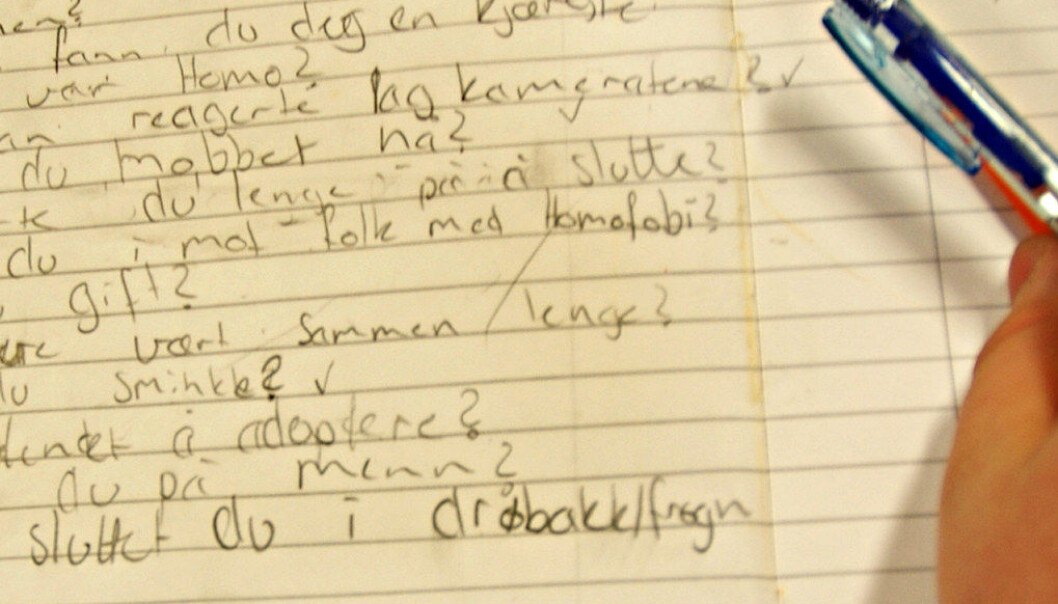 fann du deg en kjæreste
var Homo?
reagerte lag kameratene? ✓
du mobbet nå?
du lenge på å slutte?
du i mot folk med Homofobi?
gift?
vært sammen lenge?
sminke? ✓
å adoptere?
du på menn?
sluttet du i drøbakk/frogn